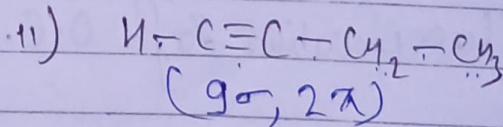 11) H – C ≡ C – CH₂ – CH₃
(9σ, 2π)